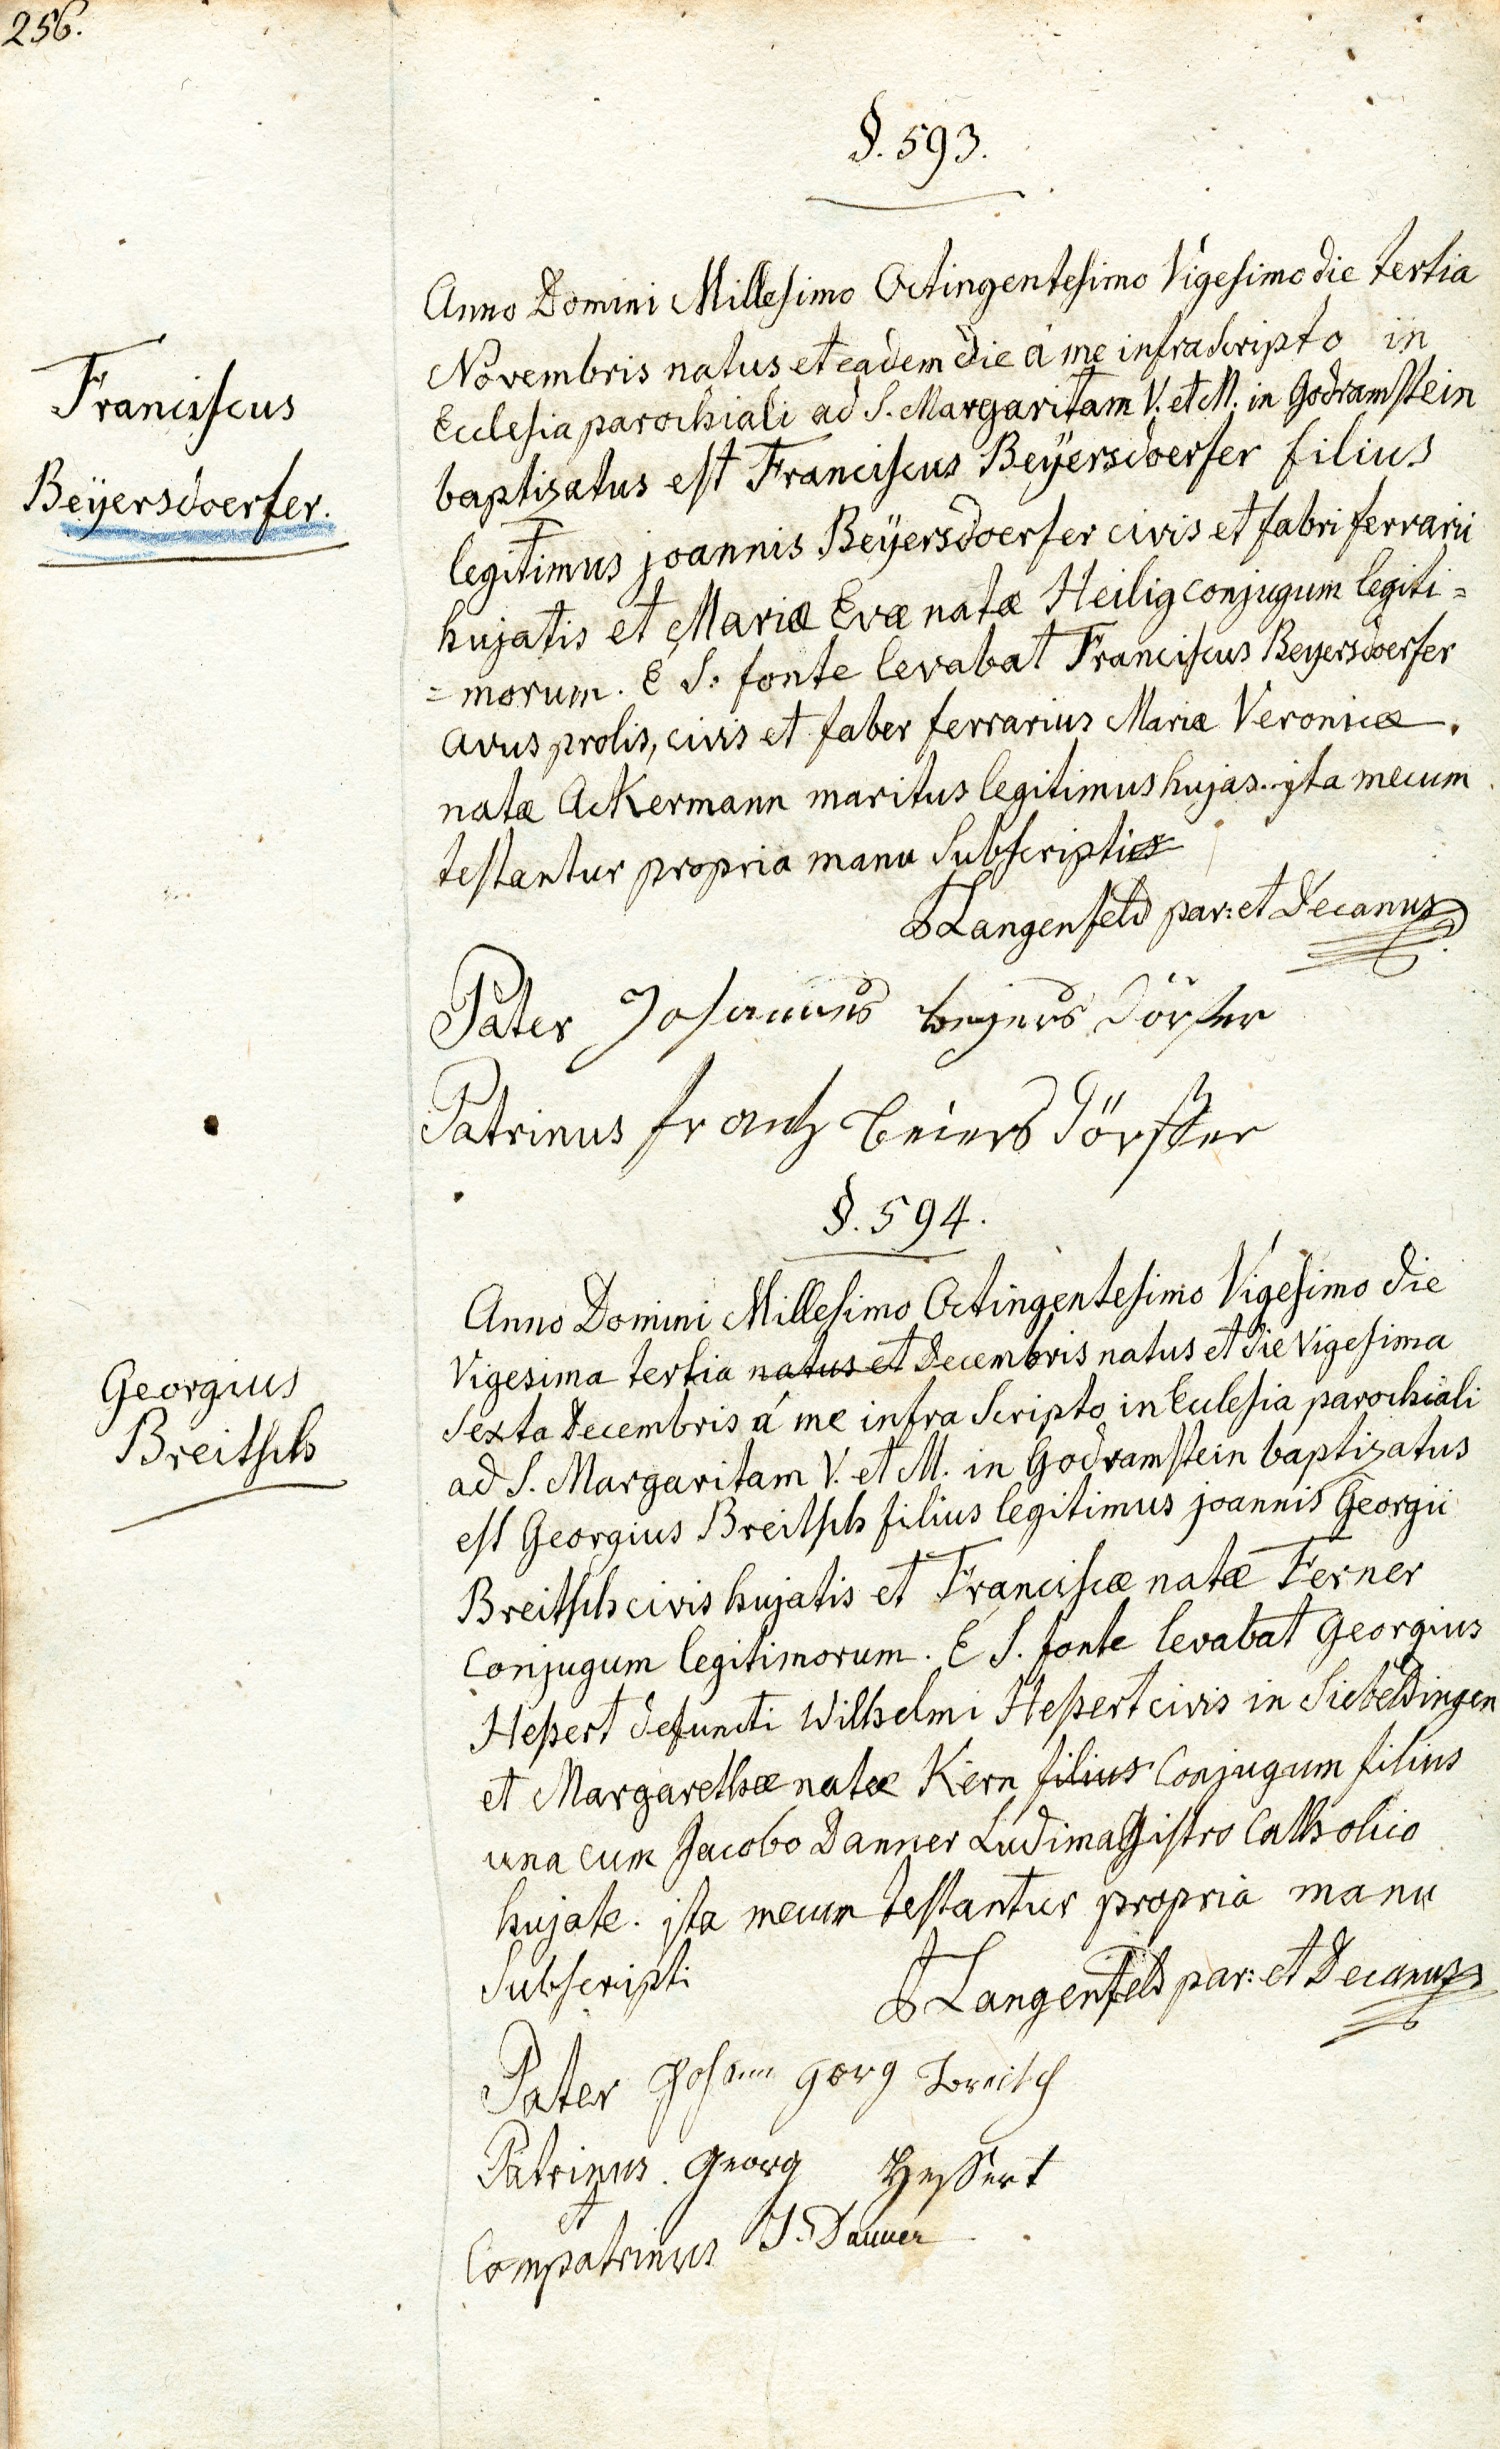 256.
§. 593.
Franciscus
Beÿersdoerfer.
Anno Domini Millesimo Octingentesimo Vigesimo die tertia
Novembris natus et eadem die á me infra Scripto in
Ecclesia parochiali ad S. Margaritam V. et M. in Godramstein
baptizatus est Franciscus Beÿersdoerfer filius
legitimus joannis Beÿersdoerfer civis et fabri ferrarii
hujatis et Mariæ Evæ natæ Heilig conjugum legiti=
=morum. E S. fonte levabat Franciscus Beyersdoerfer
avus prolis, civis et faber ferrarius Mariæ Veronicæ
natæ Ackermann maritus legitimus hujas. jta mecum
testantur propria manu Subscripti
Langenfeld par: et Decanus
Pater Johannes beyers dörfer
Patrinus frantz beiers dörffer
§. 594.
Georgius
Breitsch
Anno Domini Millesimo Octingentesimo Vigesimo die
Vigesima tertia natus et Decembris natus et die Vigesima
Sexta Decembris á me infra Scripto in Ecclesia parochiali
ad S. Margaritam V. et M. in Godramstein baptizatus
est Georgius Breitsch filius legitimus joannis Georgii
Breitsch civis hujatis et Franciscæ natæ Ferner
Conjugum legitimorum. E S. fonte levabat Georgius
Heßert defuncti Wilhelmi Heßert civis in Siebeldingen
et Margarethæ natæ Kern filius Conjugum filius
una cum Jacobo Danner Ludimagistro Catholico
hujate. jta mecum testantur propria manu
Subscripti
Langenfeld par: et Decanus
Pater Johann Georg breitsch
Patrinus. Georg Hessert
et
Compatrinus J. Danner